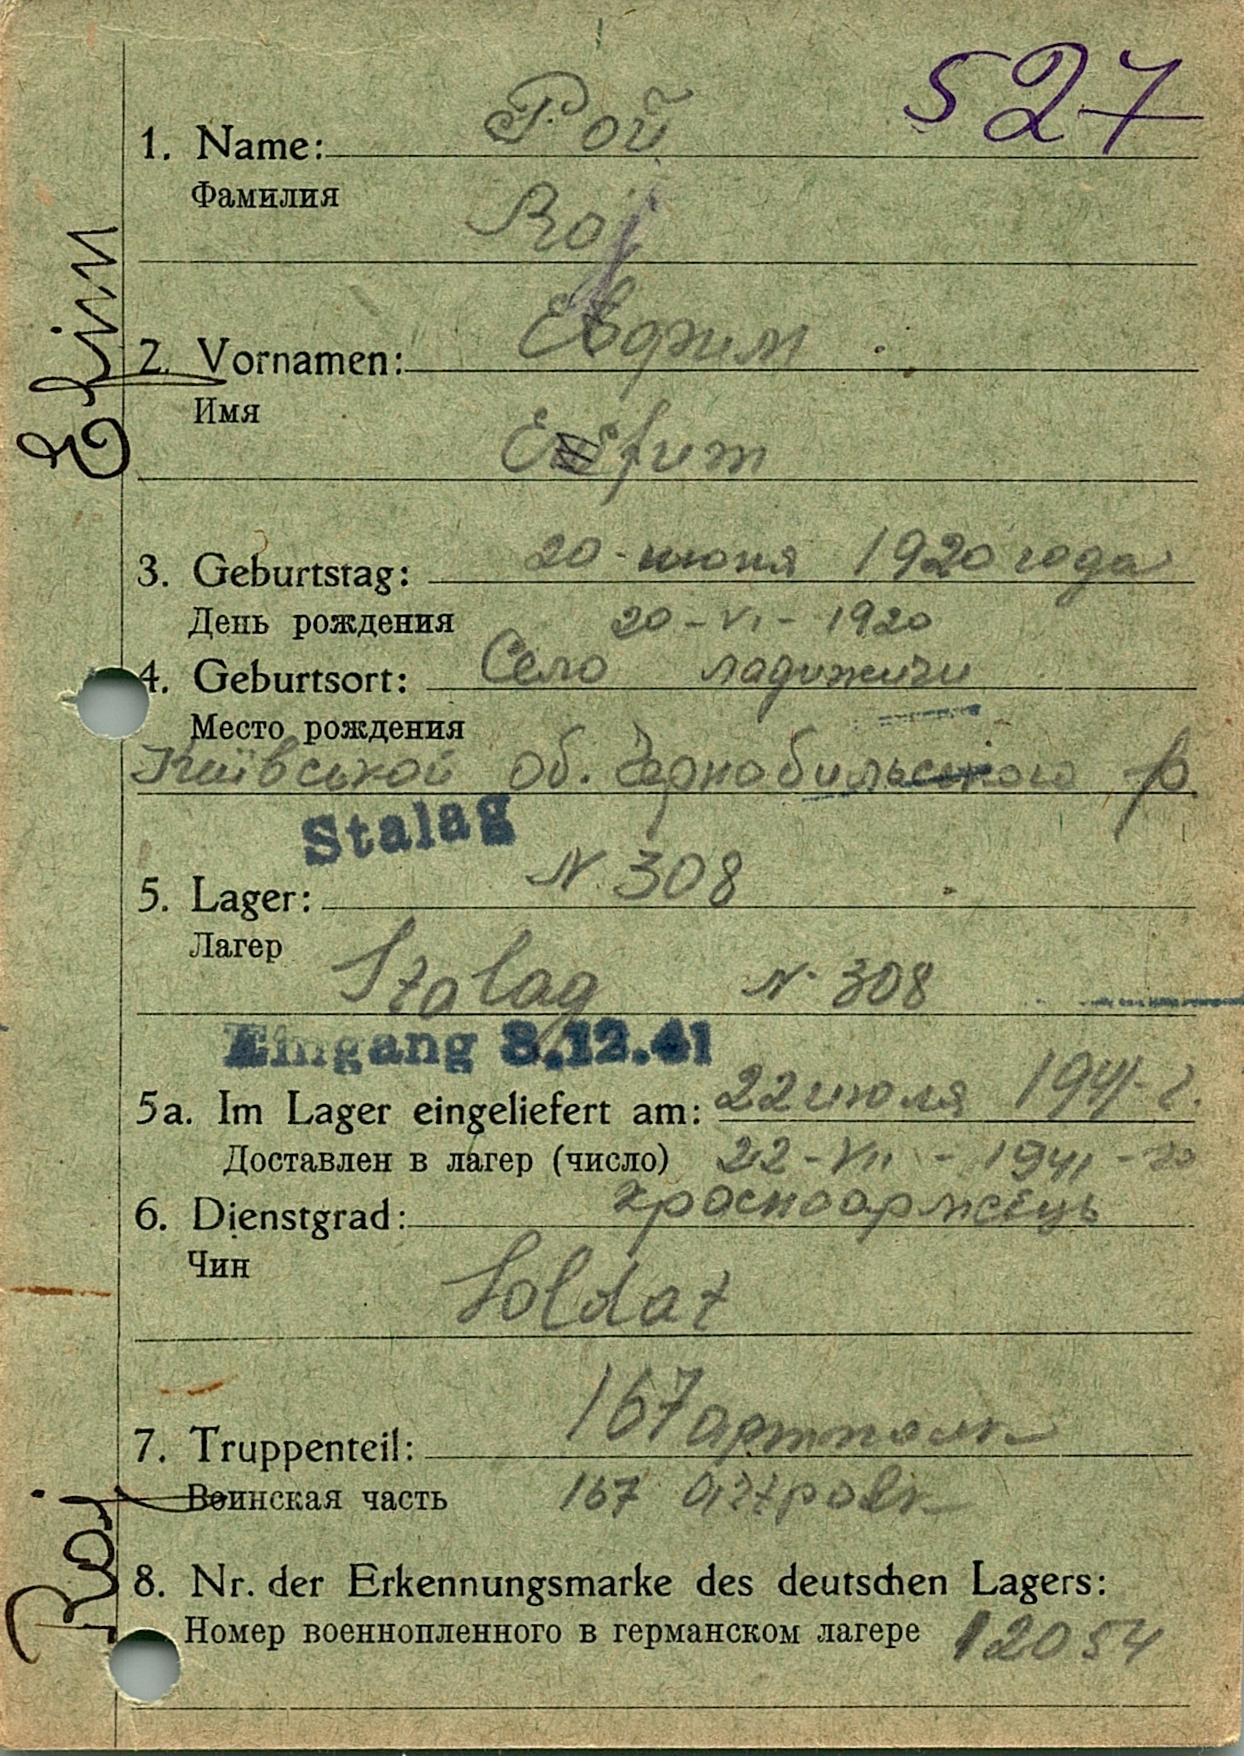 527
1. Name: Рой
Фамилия
Roj
2. Vornamen: Евфим
Имя
Efim
3. Geburtstag: 20 июня 1920 года
День рождения 20-VI-1920
4. Geburtsort: Село ладижичи
Место рождения
Київської об. Чернобильського р.
Stalag
5. Lager: N. 308
Лагер
Stalag N. 308
Eingang 8.12.41
5a. Im Lager eingeliefert am: 22 июля 1941 г.
Доставлен в лагер (число) 22-VII-1941
6. Dienstgrad: красноармеець
Чин
Soldat
7. Truppenteil: 167 артполк
Воинская часть 167 artpolk
8. Nr. der Erkennungsmarke des deutschen Lagers:
Номер военнопленного в германском лагере 12054
Efim
Roj